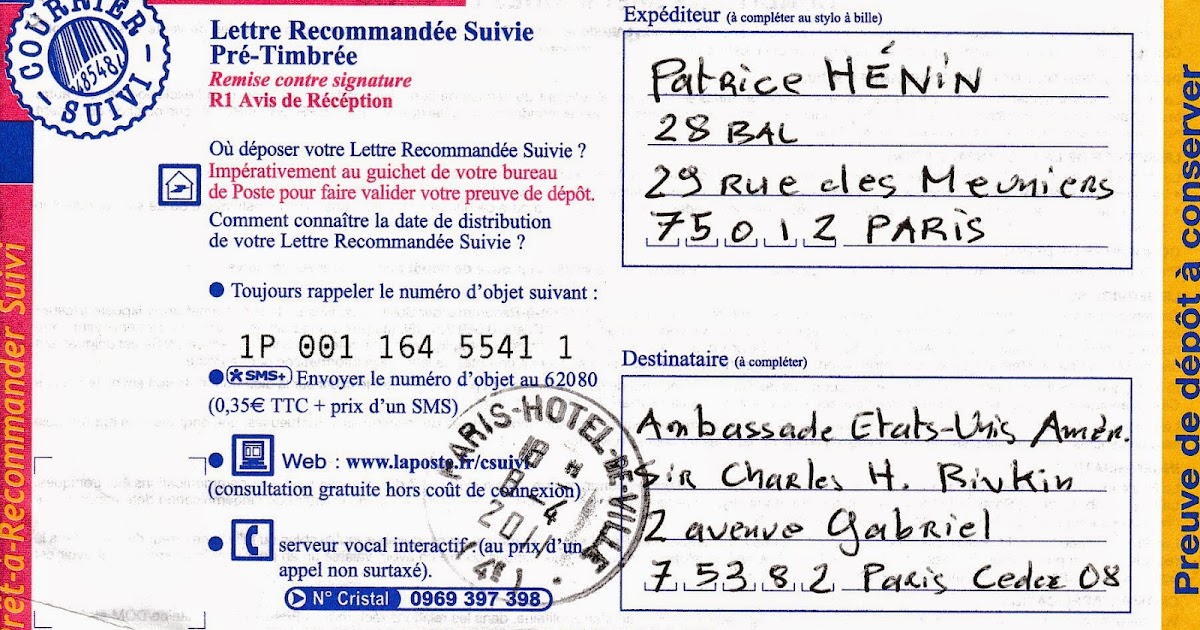 COURRIER
485484
SUIVI
Prêt-à-Recommander Suivi
Lettre Recommandée Suivie
Pré-Timbrée
Remise contre signature
R1 Avis de Réception
Où déposer votre Lettre Recommandée Suivie ?
Impérativement au guichet de votre bureau
de Poste pour faire valider votre preuve de dépôt.
Comment connaître la date de distribution
de votre Lettre Recommandée Suivie ?
● Toujours rappeler le numéro d'objet suivant :
1P 001 164 5541 1
● SMS+ Envoyer le numéro d'objet au 62080
(0,35€ TTC + prix d'un SMS)
● Web : www.laposte.fr/csuivi
(consultation gratuite hors coût de connexion)
● serveur vocal interactif (au prix d'un
appel non surtaxé).
N° Cristal 0969 397 398
PARIS-HOTEL-DE-VILLE
18 H
8-4
2011
Expéditeur (à compléter au stylo à bille)
Patrice HÉNIN
28 BAL
29 Rue des Meuniers
75012 PARIS
Destinataire (à compléter)
Ambassade Etats-Unis Amér.
Sir Charles H. Rivkin
2 avenue Gabriel
75382 Paris Cedex 08
Preuve de dépôt à conserver